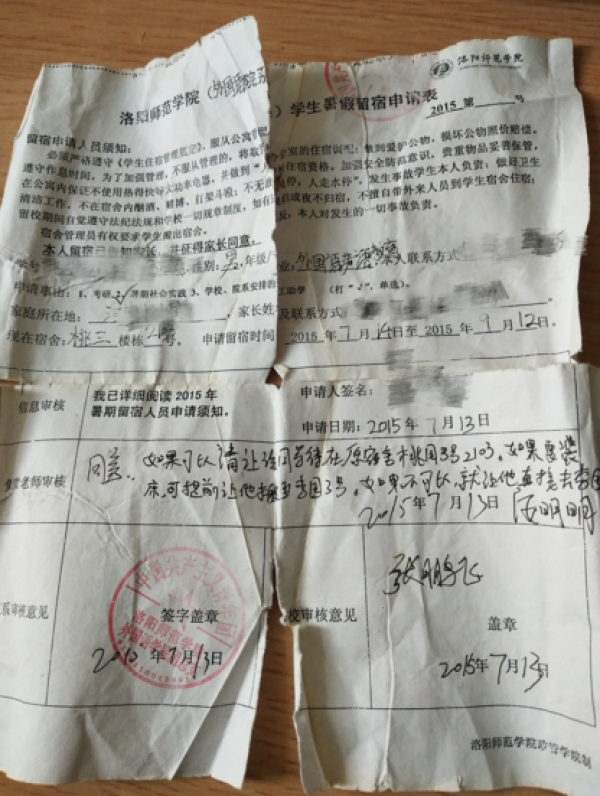 洛阳师范学院
洛阳师范学院（外国语学院系）学生暑假留宿申请表
2015 第 号
留宿申请人员须知：
必须严格遵守《学生住宿管理规定》，服从公寓管理
室的住宿调配；做到爱护公物，损坏公物照价赔偿。
遵守作息时间。为了加强管理，不服从管理的，将取
住宿资格。加强安全防范意识，贵重物品妥善保管，
在公寓内保证不使用热得快等大功率电器，并做到“人
走停，人走水停”。发生事故学生本人负责；做好卫生
清洁工作，不在宿舍内酗酒、赌博、打架斗殴；不无
或夜不归宿，不擅自带外来人员到学生宿舍住宿；
留校期间自觉遵守法纪法规和学校一切规章制度，如有
反，本人对发生的一切事故负责。
宿舍管理员有权要求学生搬出宿舍。
本人留宿已告知家长，并征得家长同意。
性别：男，年级/
业：外国语学院 本人联系方式
申请事由：1、考研 2√暑期社会实践 3、学校、院系安排的
工助学 （打“√”，单选）。
家庭所在地： ，家长姓
及联系方式
现在宿舍：桃三 楼栋 号。 申请留宿时间
2015年7月14日至2015年9月12日。
信息审核
我已详细阅读 2015 年
暑期留宿人员申请须知。
申请人签名：
申请日期：2015年7月13日
老师审核
同意。如果可以请让该同学待在原宿舍桃园3号2103。如果要
床，可提前让他搬至 园3号。如果不可以，就让他直接去
2015年7月13日 明明
系审核意见
中国共产主义青年团
洛阳师范学院
外国语学院
签字盖章
2015年7月13日
校审核意见
张鹏飞
盖章
2015年7月13日
洛阳师范学院 管学院制